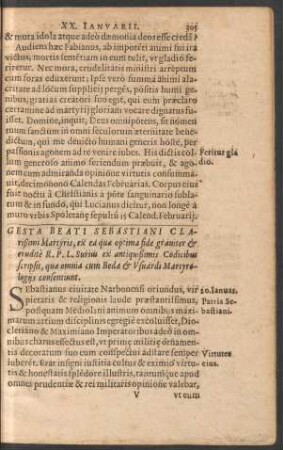 XX. IANVARII. 305
& muta idola atque adeò dæmonia deos esse credā?
Audiens hæc Fabianus, ab impoteti animi sui ira
victus, mortis sententiam in eum tulit, vt gladio fe-
riretur. Nec mora, crudelitatis ministri arreptum
eum foras eduxerunt: Ipse verò summa animi ala-
critate ad locum supplicij pergēs, positis humi ge-
nibus, gratias creatori suo egit, qui eum præclaro
certamine ad martyrij gloriam vocare dignatus fu-
isset. Domine, inquit, Deus omnipotens, sit nomen
tuum sanctum in omni seculorum æternitate bene-
dictum, qui me deuicto humani generis hoste, per
passionis agonem ad te venire iubes. His dictis col-
lum generoso animo feriendum præbuit, & ago-
nem cum admiranda opinione virtutis consumma-
uit, decimonono Calendas Februarias. Corpus eius
fuit noctu à Christianis à pōte sanguinario sublatū
& in fundo, qui Lucianus dicitur, non longè à
muro vrbis Spoletanę sepultū 15 Calend. Februarij.
Feritus gla
dio.
GESTA BEATI SEBASTIANI CLA-
rissimi Martyris, ex ea quæ optima fide grauiter &
eruditè R. P. L. Surius ex antiquissimis Codicibus
scripsit, quæ omnia cum Beda & Vsuardi Martyro-
logijs consentiunt.
SEbastianus ciuitate Narbonensi oriundus, vir
pietatis & religionis laude præstantissimus,
posteaquam Mediolani animum omnibus maxi-
marum artium disciplinis egregiè excoluisset, Dio-
cletiano & Maximiano Imperatoribus adeò in om-
nibus charus effectus est, vt primę militię ornamen-
tis decoratum suo eum conspectui aditare semper
iuberēt. Erat insigni iustitia cultus & eximio virtu-
tis & honestatis splēdore illustris, tantumque apud
omnes prudentiæ & rei militaris opinione valebat,
20. Ianua.
Patria Se-
bastiani.
Virtutes
eius.
V vt eum